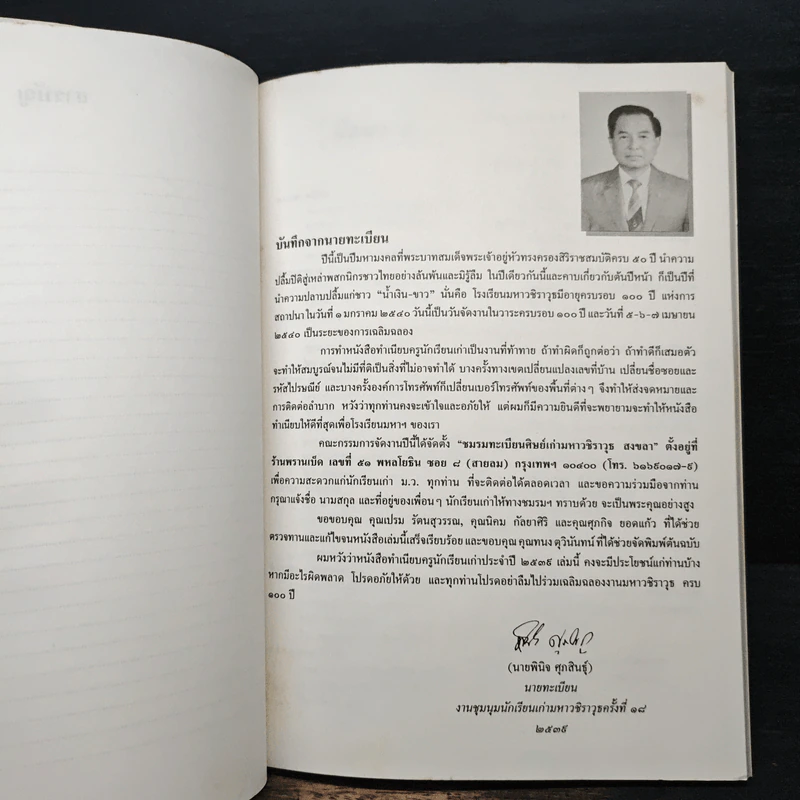 สารบัญ
บันทึกจากนายทะเบียน
ปีนี้เป็นปีมหามงคลที่พระบาทสมเด็จพระเจ้าอยู่หัวทรงครองสิริราชสมบัติครบ ๕๐ ปี นำความ
ปลื้มปีติสู่เหล่าพสกนิกรชาวไทยอย่างล้นพ้นและมิรู้ลืม ในปีเดียวกันนี้และคาบเกี่ยวกับต้นปีหน้า ก็เป็นปีที่
นำความปลาบปลื้มแก่ชาว “น้ำเงิน-ขาว” นั่นคือ โรงเรียนมหาวชิราวุธมีอายุครบรอบ ๑๐๐ ปี แห่งการ
สถาปนา ในวันที่ ๑ มกราคม ๒๕๔๐ วันนี้เป็นวันจัดงานในวาระครบรอบ ๑๐๐ ปี และวันที่ ๕-๖-๗ เมษายน
๒๕๔๐ เป็นระยะของการเฉลิมฉลอง
การทำหนังสือทำเนียบครูนักเรียนเก่าเป็นงานที่ท้าทาย ถ้าทำผิดก็ถูกต่อว่า ถ้าทำดีก็เสมอตัว
จะทำให้สมบูรณ์จนไม่มีที่ติเป็นสิ่งที่ไม่อาจทำได้ บางครั้งทางเขตเปลี่ยนแปลงเลขที่บ้าน เปลี่ยนชื่อซอยและ
รหัสไปรษณีย์ และบางครั้งองค์การโทรศัพท์ก็เปลี่ยนเบอร์โทรศัพท์ของพื้นที่ต่างๆ จึงทำให้ส่งจดหมายและ
การติดต่อลำบาก หวังว่าทุกท่านคงจะเข้าใจและอภัยให้ แต่ผมก็มีความยินดีที่จะพยายามจะทำให้หนังสือ
ทำเนียบให้ดีที่สุดเพื่อโรงเรียนมหาฯ ของเรา
คณะกรรมการจัดงานปีนี้ได้จัดตั้ง “ชมรมทะเบียนศิษย์เก่ามหาวชิราวุธ สงขลา” ตั้งอยู่ที่
ร้านพรานเบ็ด เลขที่ ๕๑ พหลโยธิน ซอย ๘ (สายลม) กรุงเทพฯ ๑๐๔๐๐ (โทร. ๖๑๖๙๐๑๗-๙)
เพื่อความสะดวกแก่นักเรียนเก่า ม.ว. ทุกท่าน ที่จะติดต่อได้ตลอดเวลา และขอความร่วมมือจากท่าน
กรุณาแจ้งชื่อ นามสกุล และที่อยู่ของเพื่อนๆ นักเรียนเก่าให้ทางชมรมฯ ทราบด้วย จะเป็นพระคุณอย่างสูง
ขอขอบคุณ คุณเปรม รัตนสุวรรณ, คุณนิคม กัลยาศิริ และคุณศุภกิจ ยอดแก้ว ที่ได้ช่วย
ตรวจทานและแก้ไขจนหนังสือเล่มนี้เสร็จเรียบร้อย และขอบคุณ คุณทนง ตุวินันทน์ ที่ได้ช่วยจัดพิมพ์ต้นฉบับ
ผมหวังว่าหนังสือทำเนียบครูนักเรียนเก่าประจำปี ๒๕๓๙ เล่มนี้ คงจะมีประโยชน์แก่ท่านบ้าง
หากมีอะไรผิดพลาด โปรดอภัยให้ด้วย และทุกท่านโปรดอย่าลืมไปร่วมเฉลิมฉลองงานมหาวชิราวุธ ครบ
๑๐๐ ปี
(นายพินิจ ศุภสินธุ์)
นายทะเบียน
งานชุมนุมนักเรียนเก่ามหาวชิราวุธครั้งที่ ๑๘
๒๕๓๙